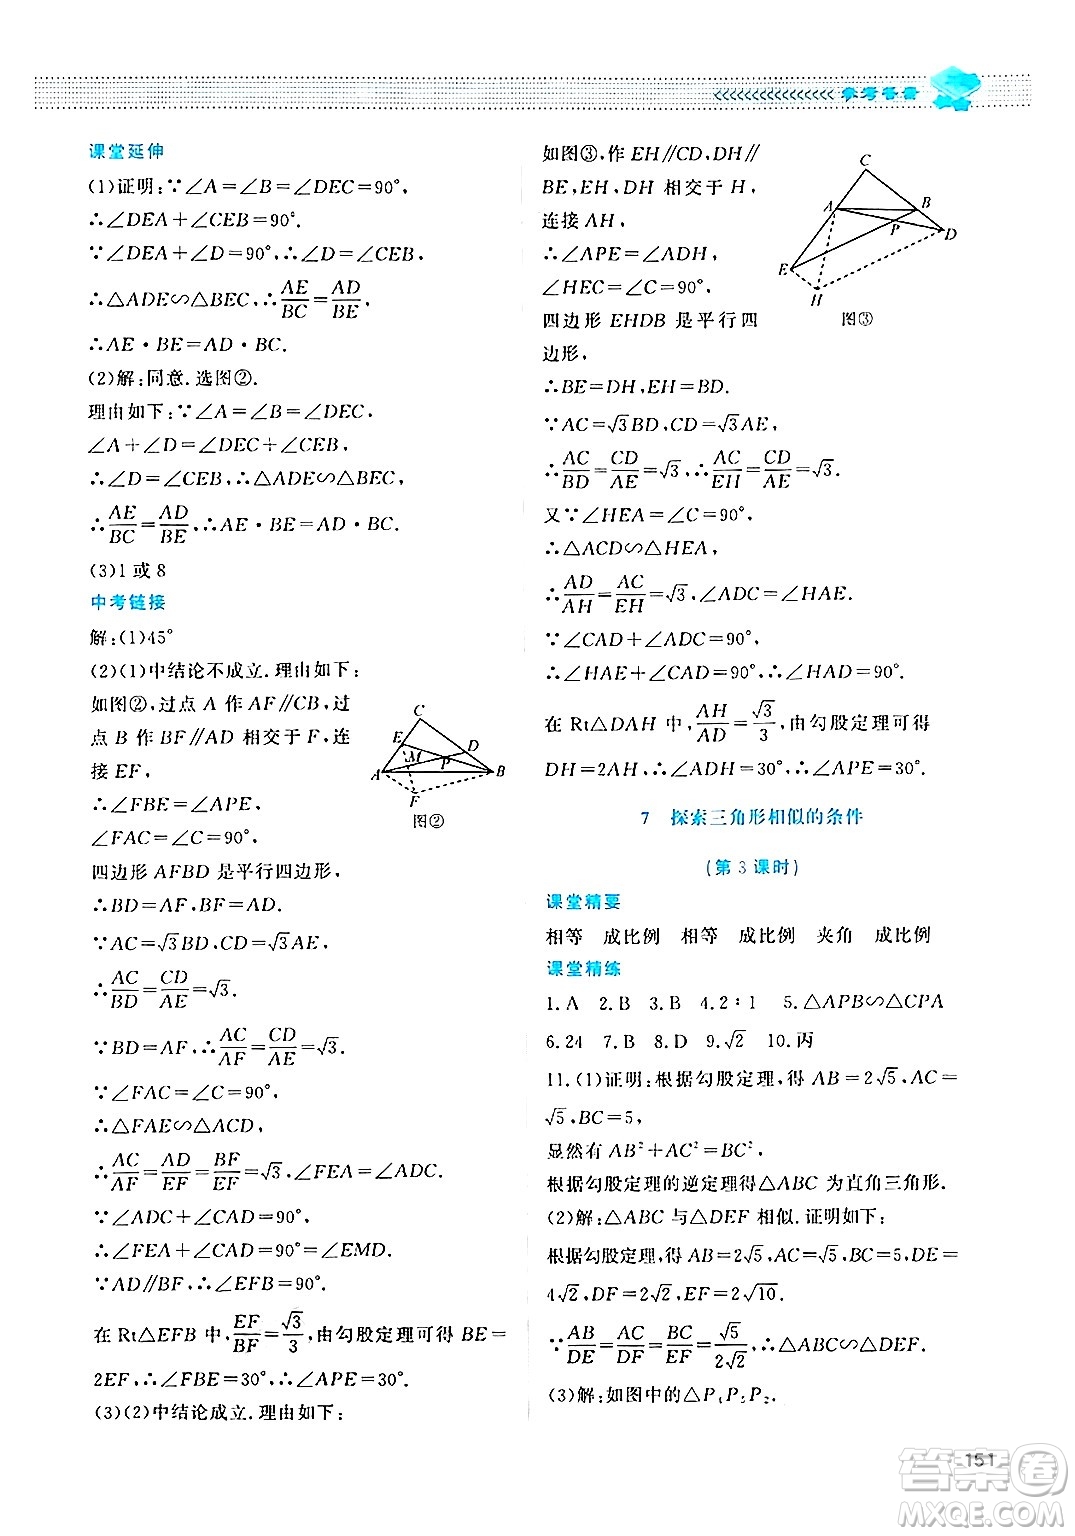 参考答案
课堂延伸
(1)证明:∵∠A=∠B=∠DEC=90°,
∴∠DEA+∠CEB=90°.
∵∠DEA+∠D=90°,∴∠D=∠CEB,
∴△ADE∽△BEC,∴AE/BC=AD/BE,
∴AE·BE=AD·BC.
(2)解:同意.选图②.
理由如下:∵∠A=∠B=∠DEC,
∠A+∠D=∠DEC+∠CEB,
∴∠D=∠CEB,∴△ADE∽△BEC,
∴AE/BC=AD/BE,∴AE·BE=AD·BC.
(3)1或8
中考链接
解:(1)45°
(2)(1)中结论不成立.理由如下:
如图②,过点A作AF∥CB,过
点B作BF∥AD相交于F,连
接EF,
∴∠FBE=∠APE,
∠FAC=∠C=90°,
四边形AFBD是平行四边形,
∴BD=AF,BF=AD.
∵AC=√3BD,CD=√3AE,
∴AC/BD=CD/AE=√3.
∵BD=AF,∴AC/AF=CD/AE=√3.
∵∠FAC=∠C=90°,
∴△FAE∽△ACD,
∴AC/AF=AD/EF=BF/EF=√3,∠FEA=∠ADC.
∵∠ADC+∠CAD=90°,
∴∠FEA+∠CAD=90°=∠EMD.
∵AD∥BF,∴∠EFB=90°.
在Rt△EFB中,EF/BF=√3/3,由勾股定理可得BE=
2EF,∴∠FBE=30°,∴∠APE=30°.
(3)(2)中结论成立.理由如下:
C
E
M
D
P
A
B
F
图②
如图③,作EH∥CD,DH∥
BE,EH,DH相交于H,
连接AH,
∴∠APE=∠ADH,
∠HEC=∠C=90°,
四边形EHDB是平行四
边形,
∴BE=DH,EH=BD.
∵AC=√3BD,CD=√3AE,
∴AC/BD=CD/AE=√3,∴AC/EH=CD/AE=√3.
又∵∠HEA=∠C=90°,
∴△ACD∽△HEA,
∴AD/AH=AC/EH=√3,∠ADC=∠HAE.
∵∠CAD+∠ADC=90°,
∴∠HAE+∠CAD=90°,∴∠HAD=90°.
在Rt△DAH中,AH/AD=√3/3,由勾股定理可得
DH=2AH,∴∠ADH=30°,∴∠APE=30°.
C
A
B
P
D
E
H
图③
7 探索三角形相似的条件
(第3课时)
课堂精要
相等 成比例 相等 成比例 夹角 成比例
课堂精练
1.A 2.B 3.B 4.2∶1 5.△APB∽△CPA
6.24 7.B 8.D 9.√2 10.丙
11.(1)证明:根据勾股定理,得AB=2√5,AC=
√5,BC=5,
显然有AB²+AC²=BC²,
根据勾股定理的逆定理得△ABC为直角三角形.
(2)解:△ABC与△DEF相似.证明如下:
根据勾股定理,得AB=2√5,AC=√5,BC=5,DE=
4√2,DF=2√2,EF=2√10.
∵AB/DE=AC/DF=BC/EF=√5/2√2,∴△ABC∽△DEF.
(3)解:如图中的△P₄P₅P₂.
151
答案圈
MXQE.COM